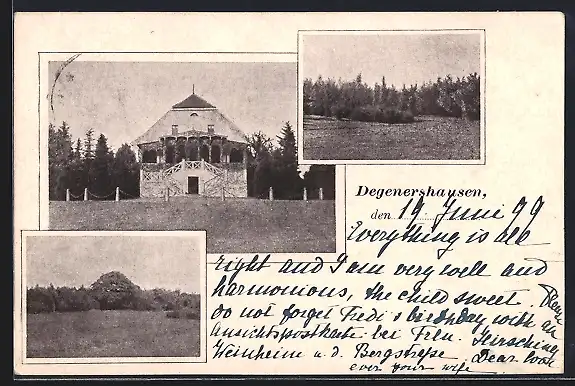 Degenershausen,
den 19. Juni 99
Everything is all
right and I am very well and
harmonious, the child sweet. Please
do not forget Fredi's birthday with an
Ansichtspostkarte bei Frln.
Weinheim a. d. Bergstrasse. Dear love
ever your wife